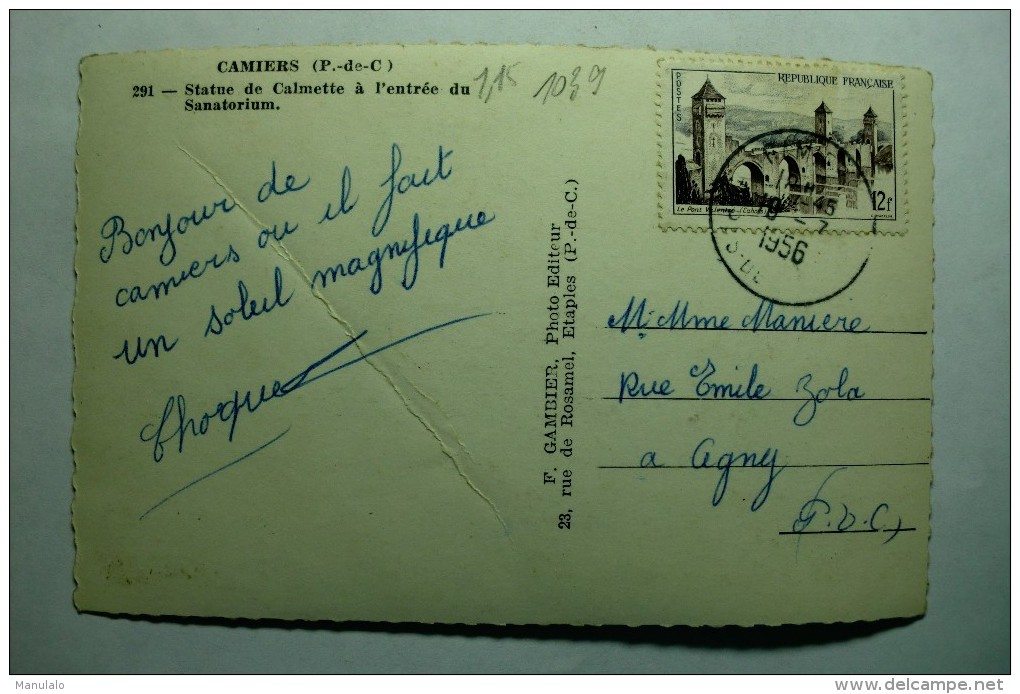 CAMIERS (P.-de-C)
291 — Statue de Calmette à l'entrée du
Sanatorium.
1,15 1039
Bonjour de
camiers ou il fait
un soleil magnifique
Choquet
F. GAMBIER, Photo Editeur
23, rue de Rosamel, Etaples (P.-de-C.)
POSTES
REPUBLIQUE FRANÇAISE
Le Pont Valentré (Cahors)
12f
1956
Mr Mme Maniere
Rue Emile Zola
a Agny
P.D.C,
Manulalo
www.delcampe.net